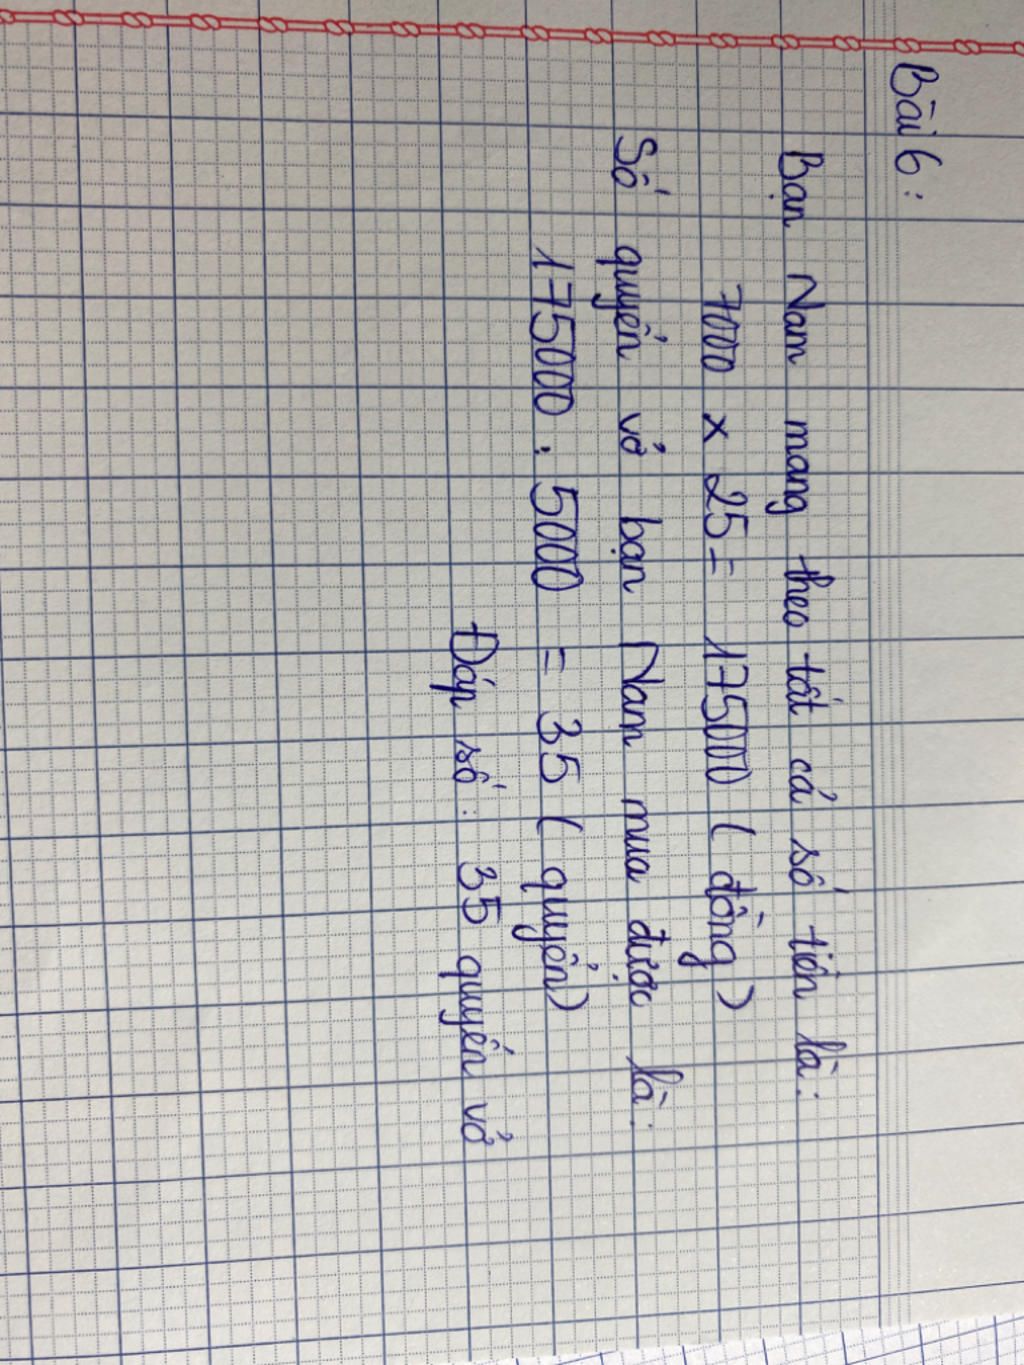 Bài 6:
Bạn Nam mang theo tất cả số tiền là:
7000 x 25 = 175000 ( đồng )
Số quyển vở bạn Nam mua được là:
175000 : 5000 = 35 ( quyển )
Đáp số : 35 quyển vở